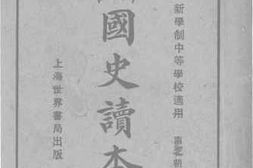 新學制中等學校適用
國史讀本
上海世界書局出版